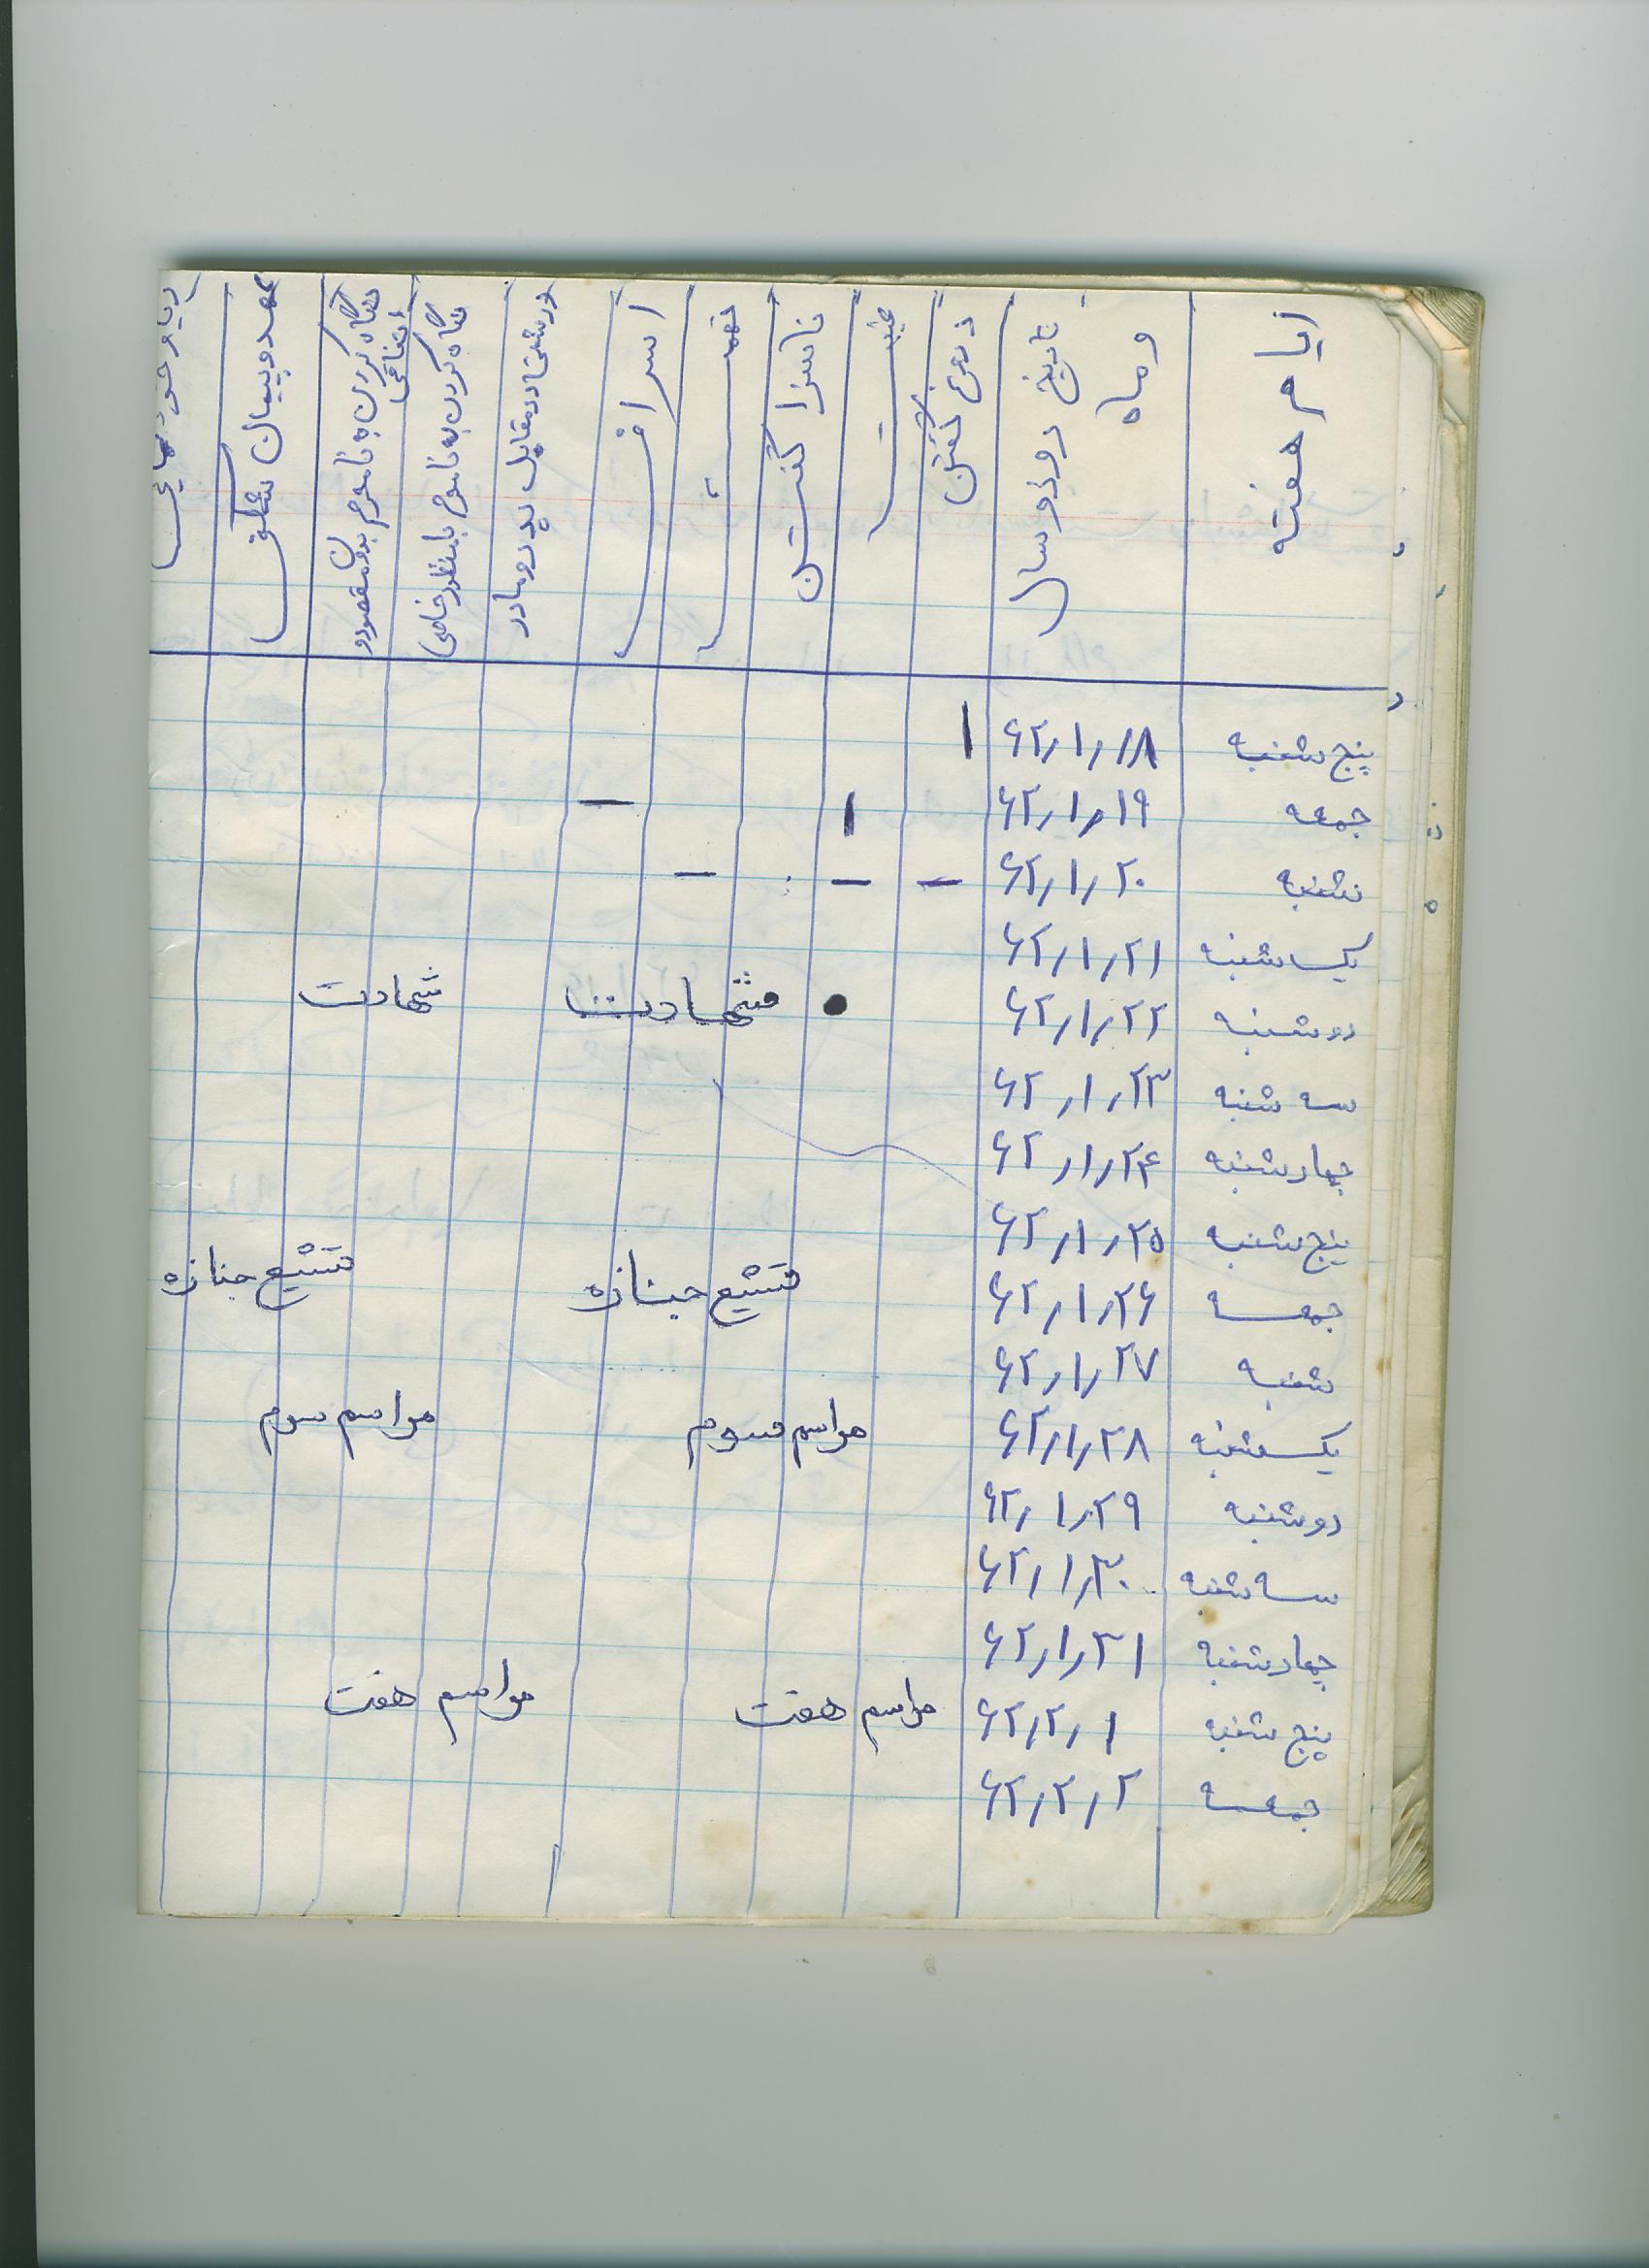 ایام هفته
تاریخ روز و سال
و ماه
دروغ گفتن
غیبت
ناسزا گفتن
تهمت
اسراف
درشتی در مقابل پدر و مادر
نگاه کردن به نامحرم با منظور خاصی
نگاه کردن به نامحرم بدون مقصود و
اتفاقی
عهد و پیمان شکنی
ریا و خودنمایی
پنج شنبه ۶۲/۱/۱۸ ا
جمعه ۶۲/۱/۱۹ ا —
شنبه ۶۲/۱/۲۰ — — —
یکشنبه ۶۲/۱/۲۱
دوشنبه ۶۲/۱/۲۲ • شهادت شهادت
سه شنبه ۶۲/۱/۲۳
چهارشنبه ۶۲/۱/۲۴
پنج شنبه ۶۲/۱/۲۵
جمعه ۶۲/۱/۲۶ تشیع جنازه تشیع جنازه
شنبه ۶۲/۱/۲۷
یکشنبه ۶۲/۱/۲۸ مراسم سوم مراسم سوم
دوشنبه ۶۲/۱/۲۹
سه شنبه ۶۲/۱/۳۰
چهارشنبه ۶۲/۱/۳۱
پنج شنبه ۶۲/۲/۱ مراسم هفت مراسم هفت
جمعه ۶۲/۲/۲